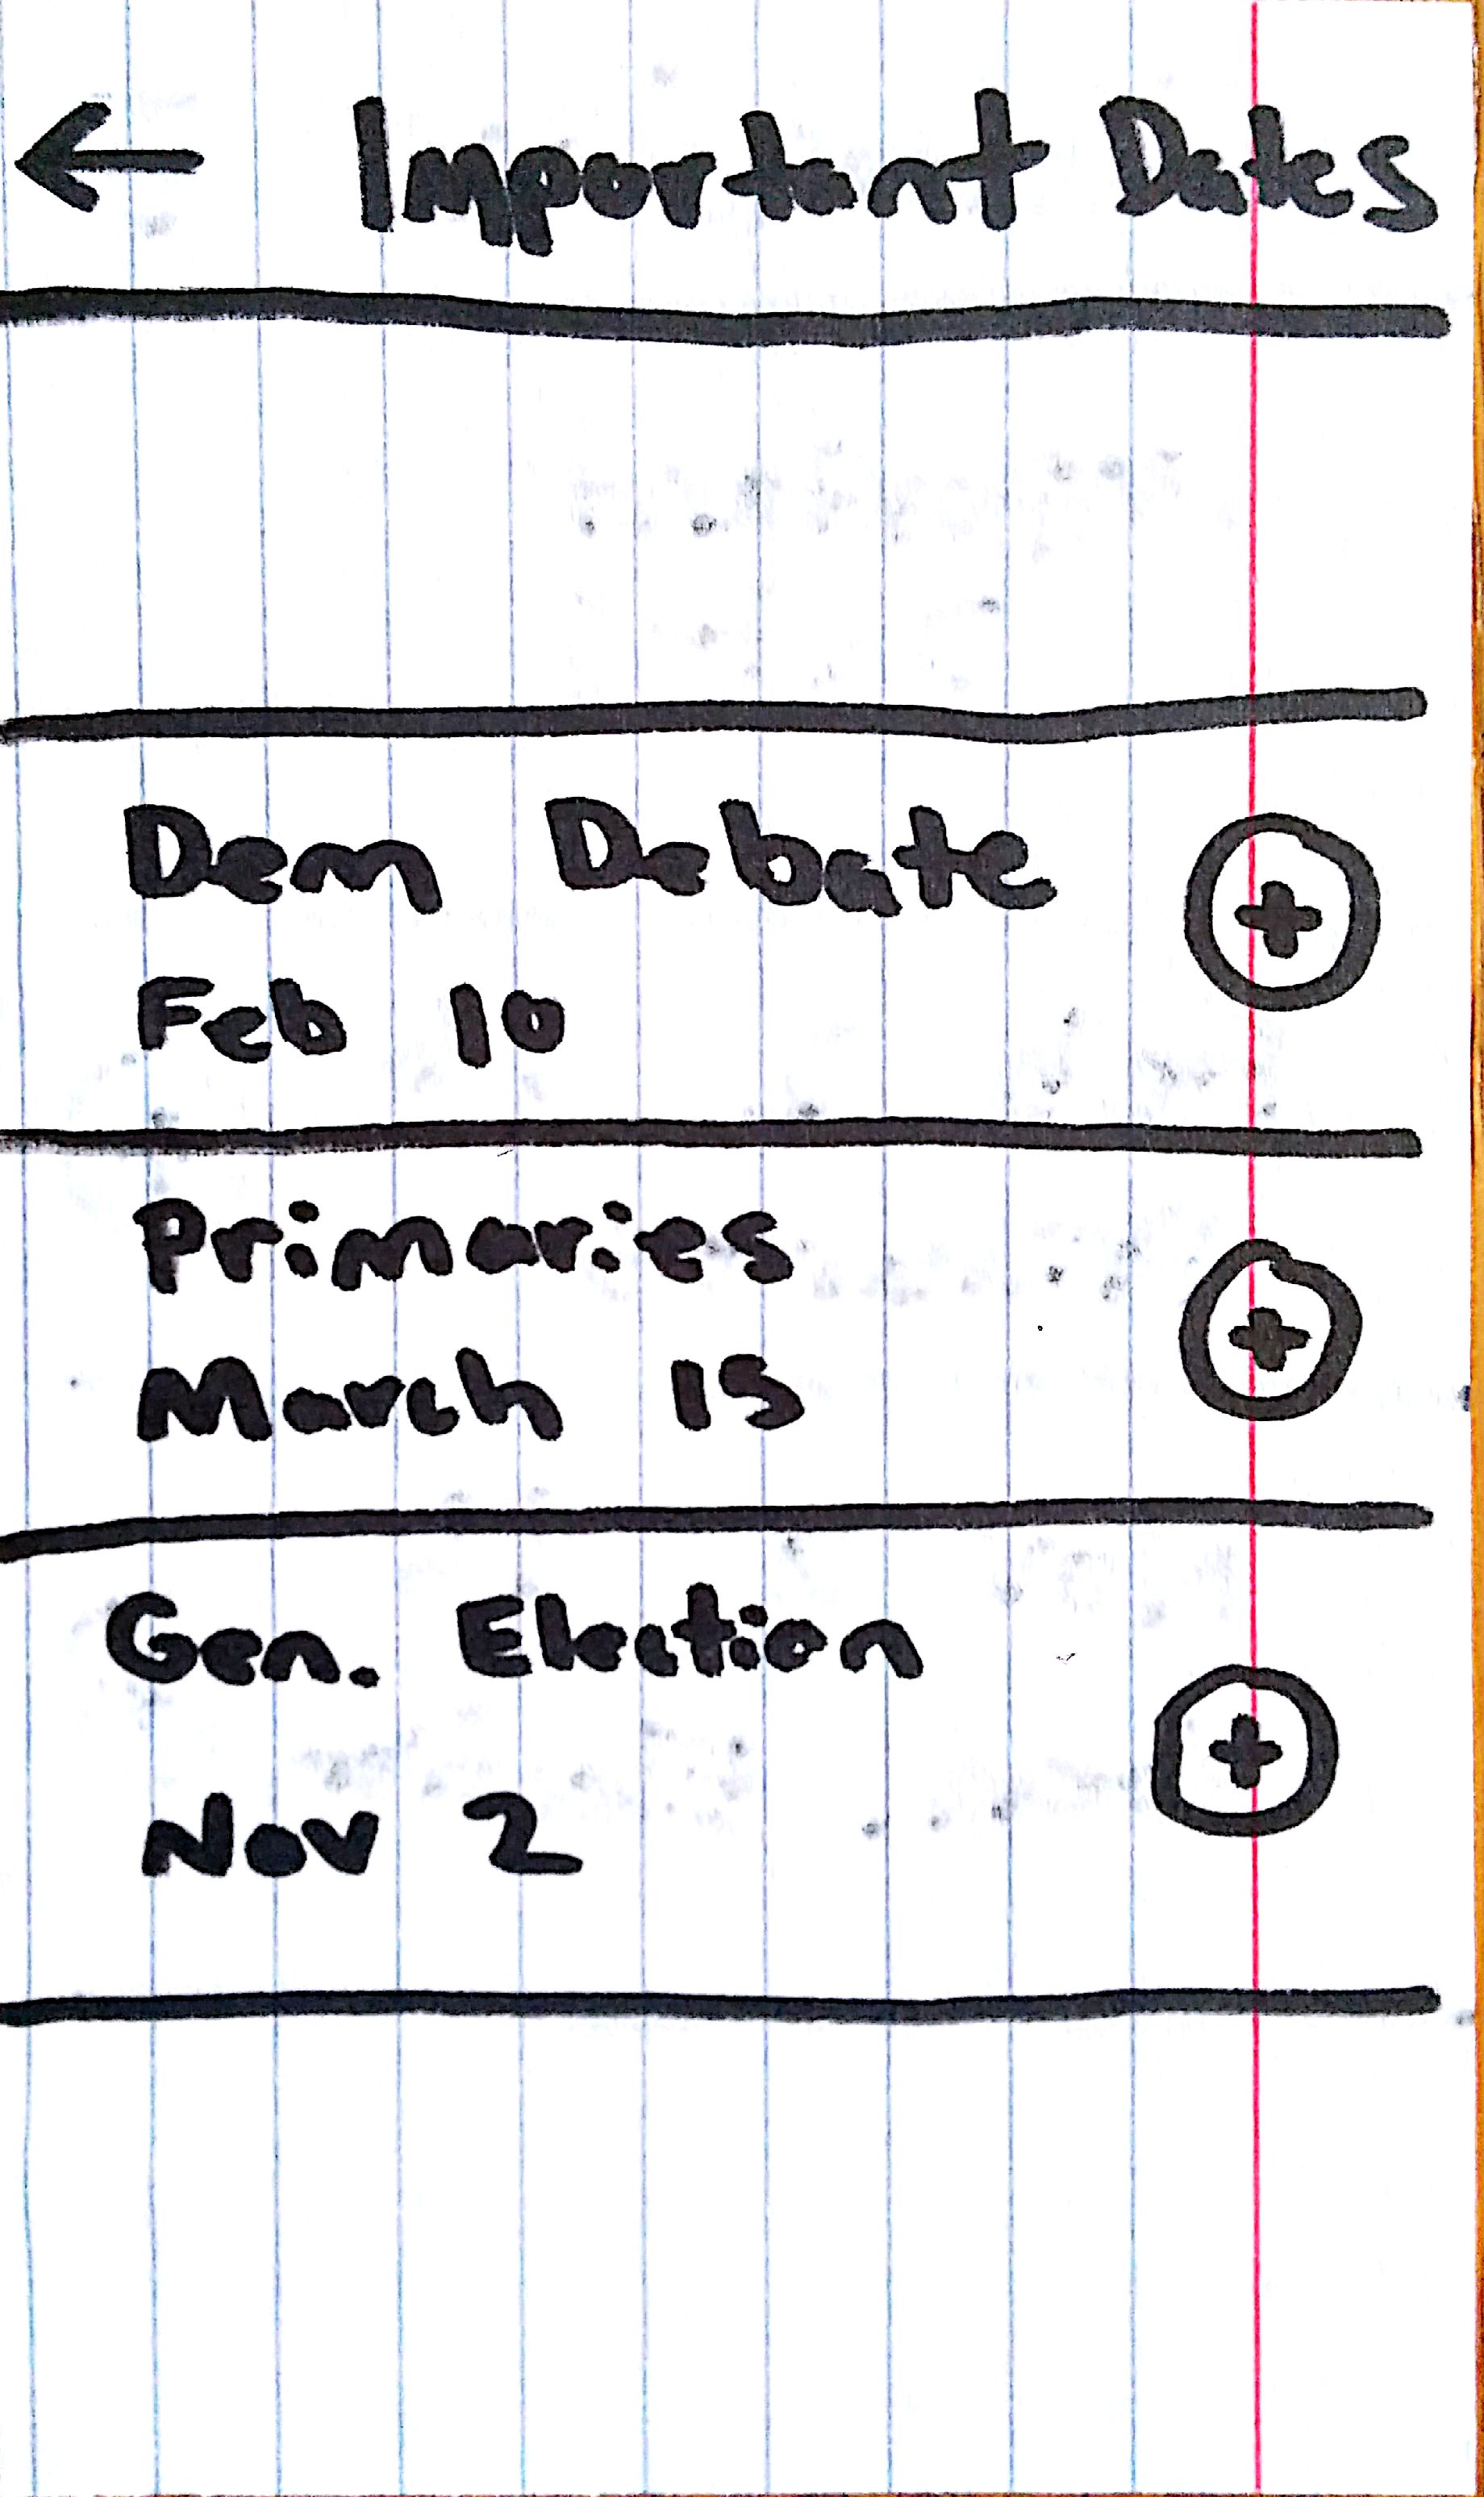 ← Important Dates
Dem Debate
Feb 10
Primaries
March 15
Gen. Election
Nov 2